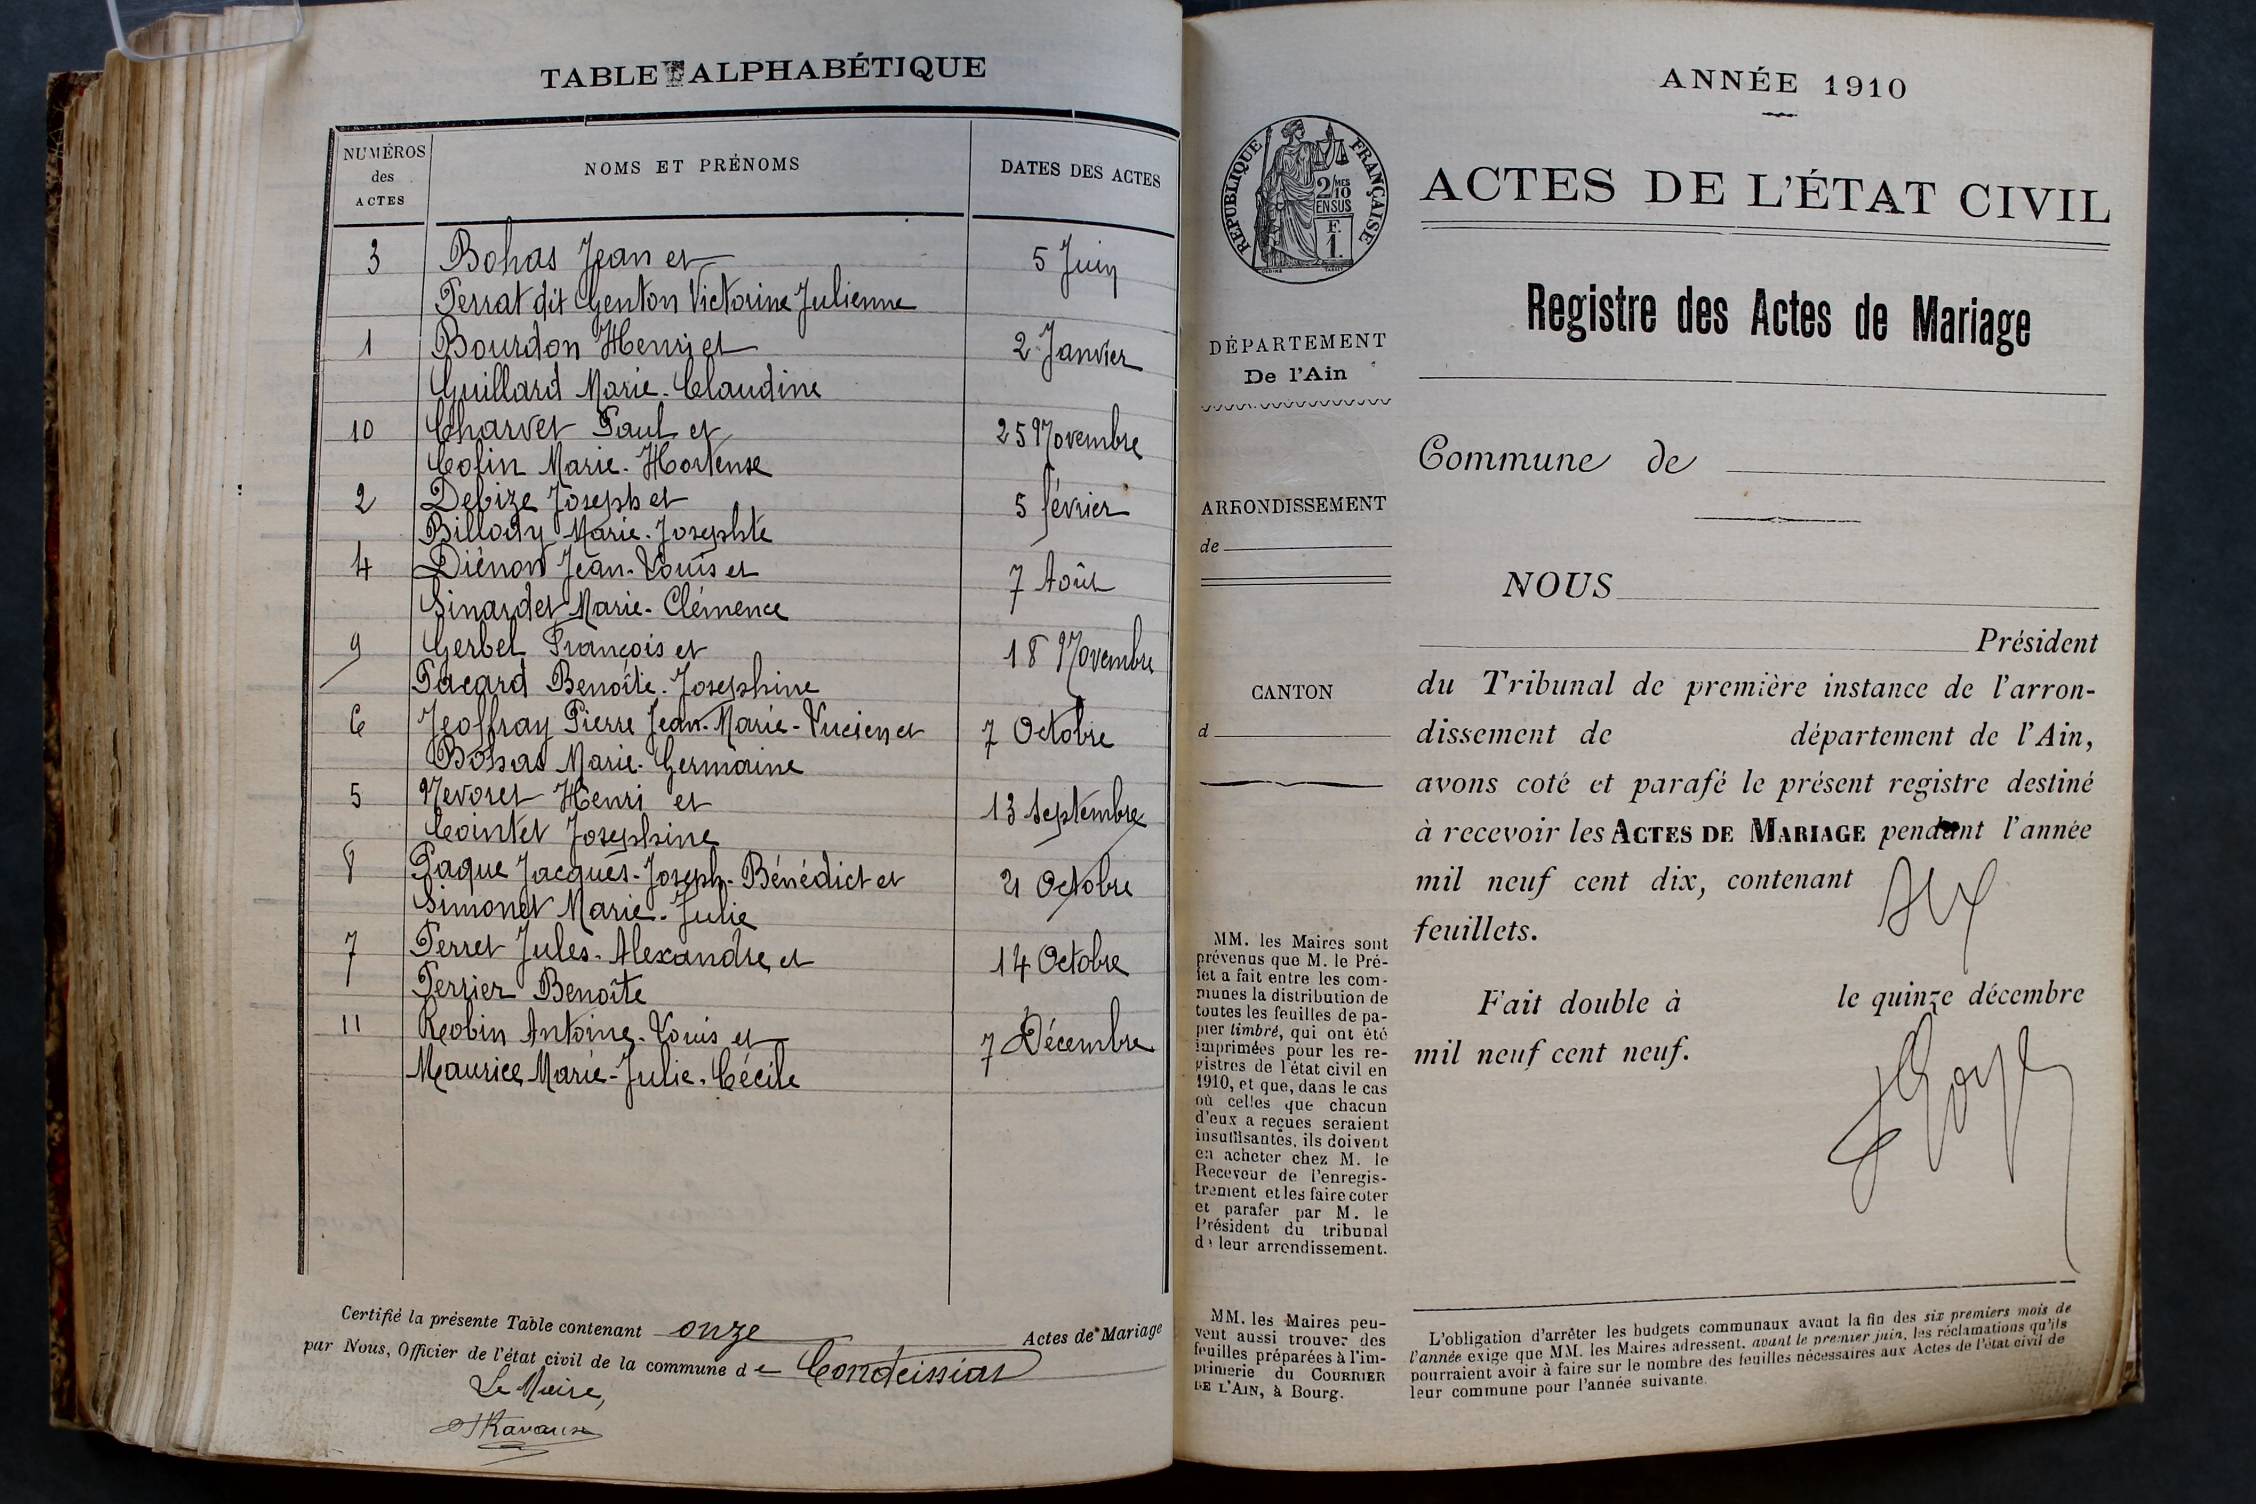 TABLE ALPHABÉTIQUE
NUMÉROS des ACTES
NOMS ET PRÉNOMS
DATES DES ACTES
3 Bohas Jean et 5 Juin
Perrat dit Genton Victorine Julienne
1 Bourdon Henri et 2 Janvier
Guillard Marie-Claudine
10 Charvet Paul et 25 Novembre
Colin Marie-Hortense
2 Debize Joseph et 5 février
Billoud Marie-Josephte
4 Diénon Jean-Louis et 7 Août
Sinardet Marie-Clémence
9 Gerbel François et 18 Novembre
Pacard Benoîte-Josephine
6 Jeoffray Pierre Jean-Marie-Lucien et 7 Octobre
Bohas Marie-Germaine
5 Nevoret Henri et 13 septembre
Cointet Josephine
8 Paque Jacques-Joseph-Bénédict et 21 Octobre
Simonet Marie-Julie
7 Perret Jules-Alexandre et 14 Octobre
Perrier Benoîte
11 Robin Antoine-Louis et 7 Décembre
Maurice Marie-Julie-Cécile
Certifié la présente Table contenant onze Actes de Mariage
par Nous, Officier de l'état civil de la commune de Condeissiat
Le Maire,
ANNÉE 1910
RÉPUBLIQUE FRANÇAISE
2/10MES
EN SUS
F.
1.
ACTES DE L'ÉTAT CIVIL
Registre des Actes de Mariage
DÉPARTEMENT
De l'Ain
Commune de
ARRONDISSEMENT
de
NOUS
Président
CANTON
d
du Tribunal de première instance de l'arron-
dissement de département de l'Ain,
avons coté et parafé le présent registre destiné
à recevoir les ACTES DE MARIAGE pendant l'année
mil neuf cent dix, contenant six
feuillets.
Fait double à le quinze décembre
mil neuf cent neuf.
MM. les Maires sont
prévenus que M. le Pré-
fet a fait entre les com-
munes la distribution de
toutes les feuilles de pa-
pier timbré, qui ont été
imprimées pour les re-
gistres de l'état civil en
1910, et que, dans le cas
où celles que chacun
d'eux a reçues seraient
insuffisantes, ils doivent
en acheter chez M. le
Receveur de l'enregis-
trement et les faire coter
et parafer par M. le
Président du tribunal
de leur arrondissement.
MM. les Maires peu-
vent aussi trouver des
feuilles préparées à l'im-
primerie du COURRIER
DE L'AIN, à Bourg.
L'obligation d'arrêter les budgets communaux avant la fin des six premiers mois de
l'année exige que MM. les Maires adressent, avant le premier juin, les réclamations qu'ils
pourraient avoir à faire sur le nombre des feuilles nécessaires aux Actes de l'état civil de
leur commune pour l'année suivante.